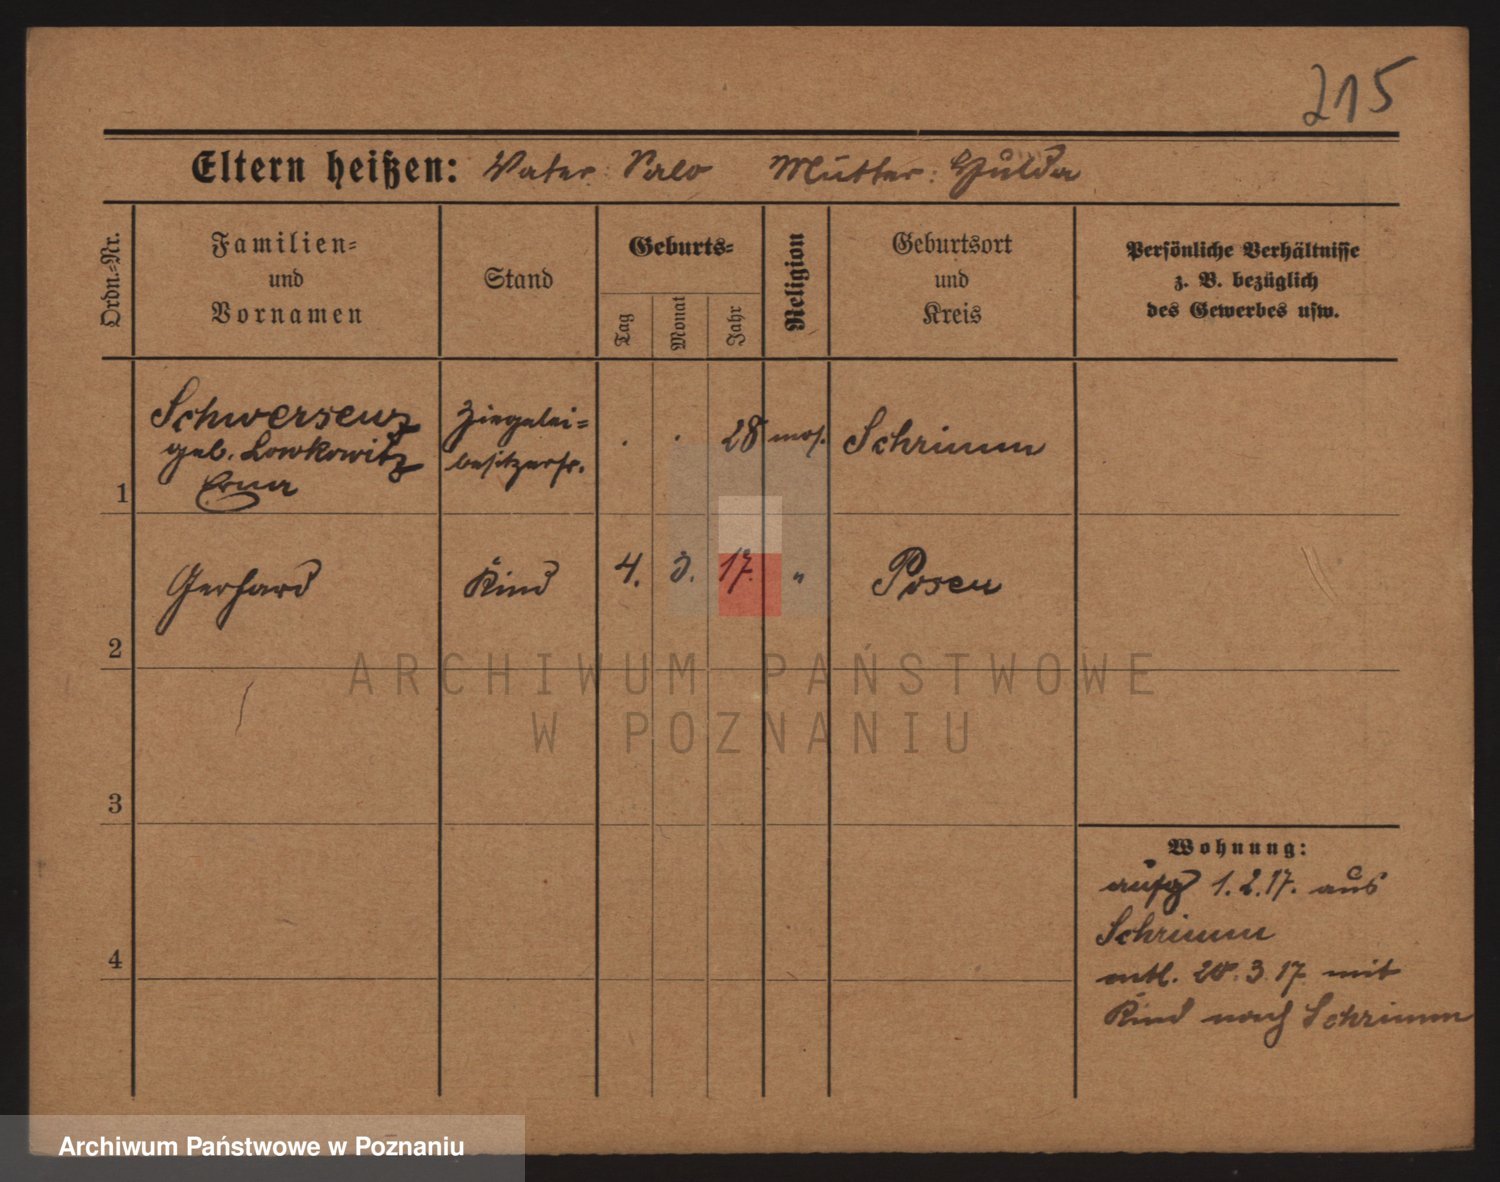 215
Eltern heißen: Vater: Salo Mutter: Hulda
Ordn.-Nr.
Familien-
und
Vornamen
Stand
Geburts-
Tag
Monat
Jahr
Religion
Geburtsort
und
Kreis
Persönliche Verhältnisse
z. B. bezüglich
des Gewerbes usw.
1
Schwersenz
geb. Lowkowitz
Erna
Ziegelei-
besitzersfr.
. . 28 mos. Schrimm
2
Gerhard Kind 4. 3. 17. " Posen
3
4
Wohnung:
aufg 1.2.17. aus
Schrimm
entl. 20.3.17 mit
Kind nach Schrimm
ARCHIWUM PAŃSTWOWE
W POZNANIU
Archiwum Państwowe w Poznaniu